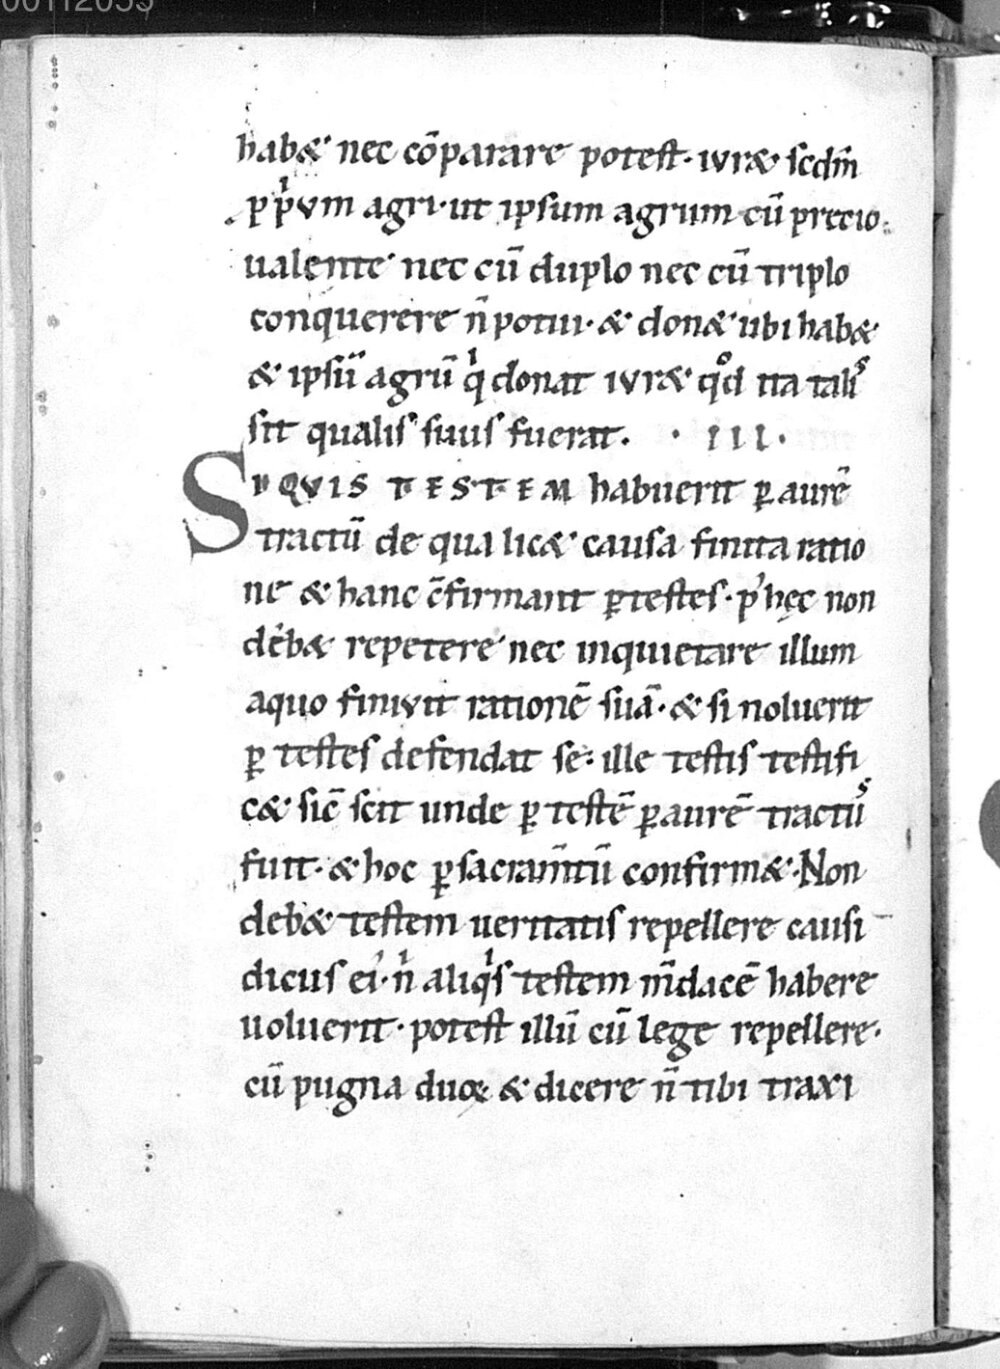 00112053
hab&́ nec cōparare potest· iur& scdm̄
ꝑp̍vm agri· ut ipsum agrum cū precio
ualente nec cū duplo nec cū triplo
conquerere n̄ potui· & don& ubi hab&
& ipsū agrū q̍ donat iur& qͦd ita taliˢ
sit qualis suus fuerat. · III·
SVQVIS TESTEM habuerit ꝑ aurē
tractū de qua lic& causa finita ratio
ne & hanc c̄firmant ꝑ testes· p' hęc non
deb& repetere nec inquietare illum
aquo finivit rationē suā· & si noluerit
ꝑ testes defendat se· ille testis testifi
c& sic̄ scit unde ꝑ testē ꝑ aurē tractuˢ
fuit· & hoc ꝑ sacram̄tū confirm&· Non
deb& testem ueritatis repellere causi
dicus ei· n̍ aliq̍s testem m̄dacē habere
uoluerit· potest illū cū lege repellere·
cū pugna duoꝝ & dicere n̄ tibi traxi